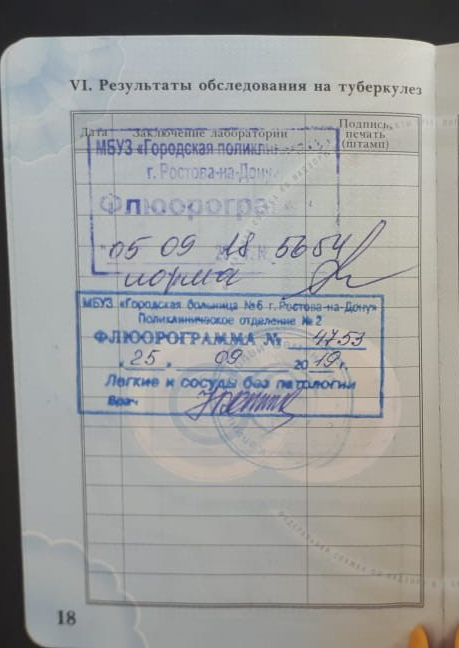 VI. Результаты обследования на туберкулез
Дата
Заключение лаборатории
Подпись,
печать
(штамп)
МБУЗ «Городская поликлиника
г. Ростова-на-Дону»
Флюорогра
"05 09 18 5654
норма
МБУЗ «Городская больница №6 г. Ростова-на-Дону»
Поликлиническое отделение №2
ФЛЮОРОГРАММА № 4753
„25„ 09 2019 г.
Легкие и сосуды без патологии
Врач
18